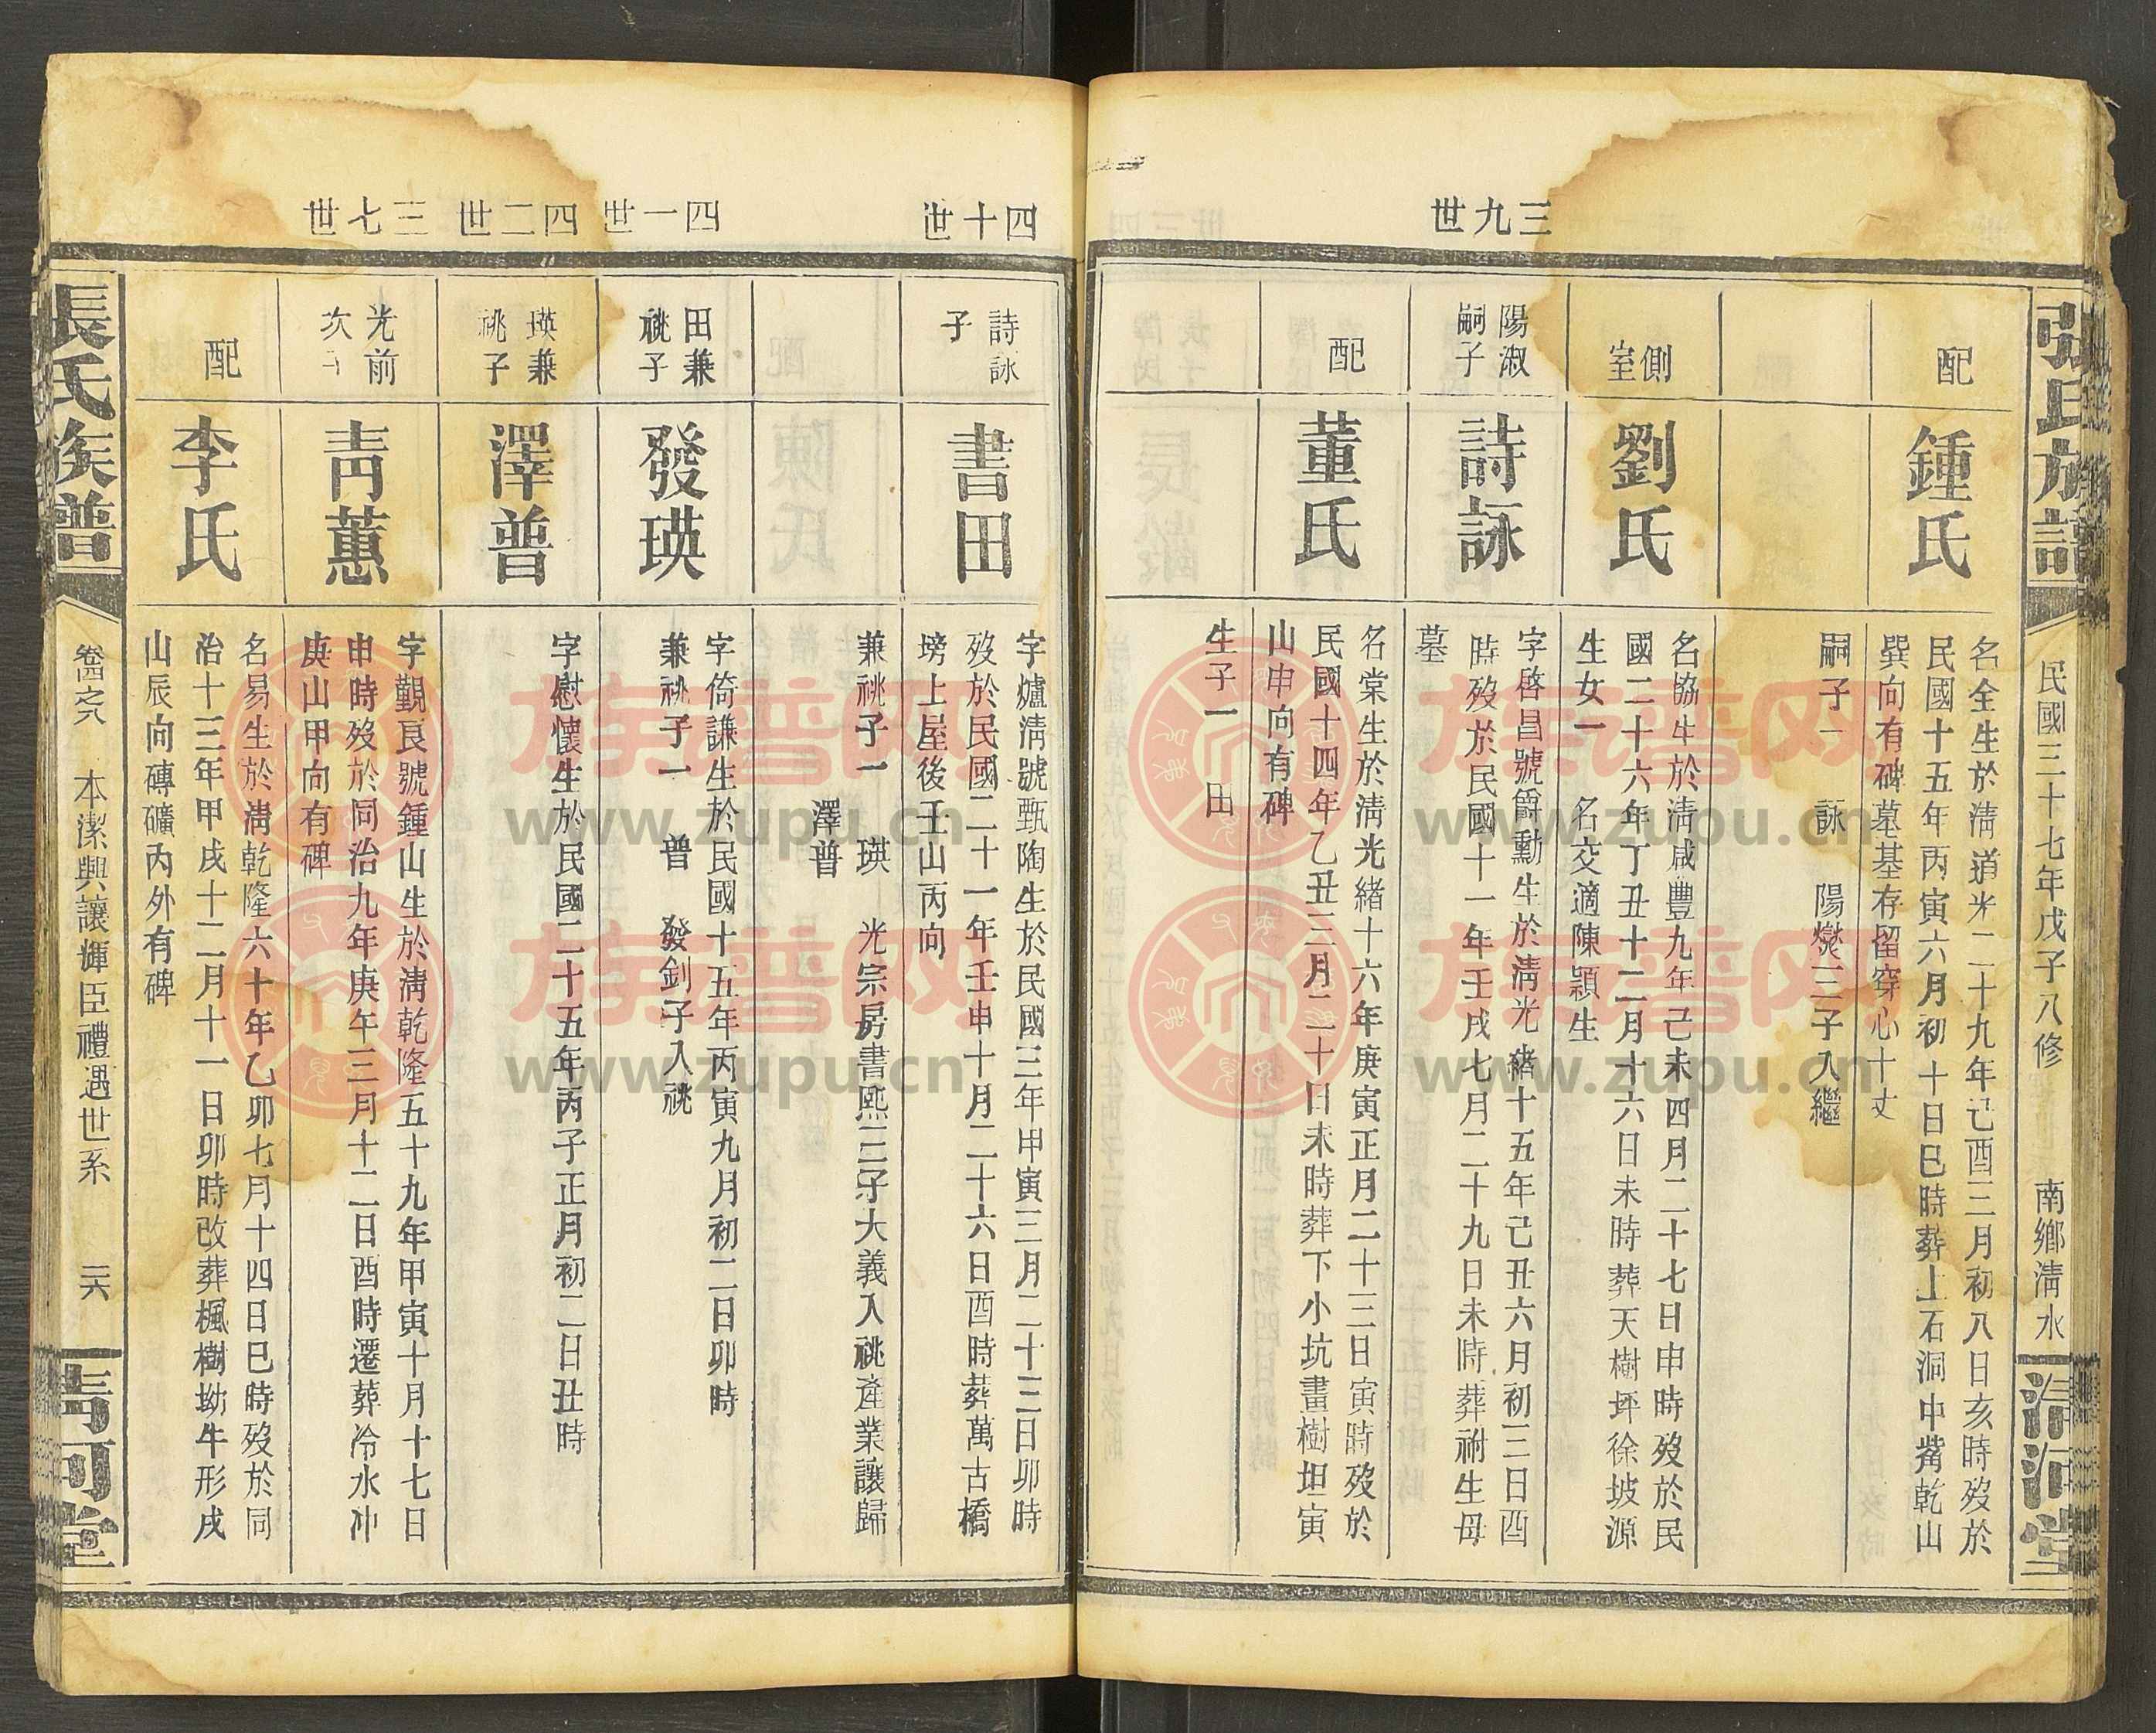 張氏族譜
民國三十七年戊子八修
南鄉淸水
淸河堂
三九世
配
鍾氏
名全生於淸道光二十九年己酉三月初八日亥時歿於
民國十五年丙寅六月初十日巳時葬上石洞中嘴乾山
巽向有碑墓基存留穿心十丈
嗣子一 詠 陽爕三子入繼
側室
劉氏
名協生於淸咸豐九年己未四月二十七日申時歿於民
國二十六年丁丑十二月十六日未時葬天樹坪徐坡源
生女一 名交適陳顯生
陽淑嗣子
詩詠
字啓昌號爵勳生於淸光緒十五年己丑六月初三日酉
時歿於民國十一年壬戌七月二十九日未時葬祔生母
墓
配
董氏
名棠生於淸光緒十六年庚寅正月二十三日寅時歿於
民國十四年乙丑三月二十日未時葬下小坑畫樹坦寅
山申向有碑
生子一 田
四十世
詩詠子
書田
字爐淸號甄陶生於民國三年甲寅三月二十三日卯時
歿於民國二十一年壬申十月二十六日酉時葬萬古橋
塝上屋後壬山丙向
兼祧子一 瑛 光宗房書熙三子大義入祧產業讓歸
澤普
四一世
田兼祧子
發瑛
字倚謙生於民國十五年丙寅九月初二日卯時
兼祧子一 普 發釗子入祧
四二世
瑛兼祧子
澤普
字慰懷生於民國二十五年丙子正月初二日丑時
三七世
光前次子
靑蕙
字觀良號鍾山生於淸乾隆五十九年甲寅十月十七日
申時歿於同治九年庚午三月十二日酉時遷葬冷水冲
庚山甲向有碑
配
李氏
名易生於淸乾隆六十年乙卯七月十四日巳時歿於同
治十三年甲戌十二月十一日卯時改葬楓樹坳牛形戌
山辰向磚礦內外有碑
張氏族譜
卷四之八 本潔興讓輝臣禮遇世系 二六
淸河堂
族譜网
www.zupu.cn
族譜网
www.zupu.cn
族譜网
www.zupu.cn
族譜网
www.zupu.cn